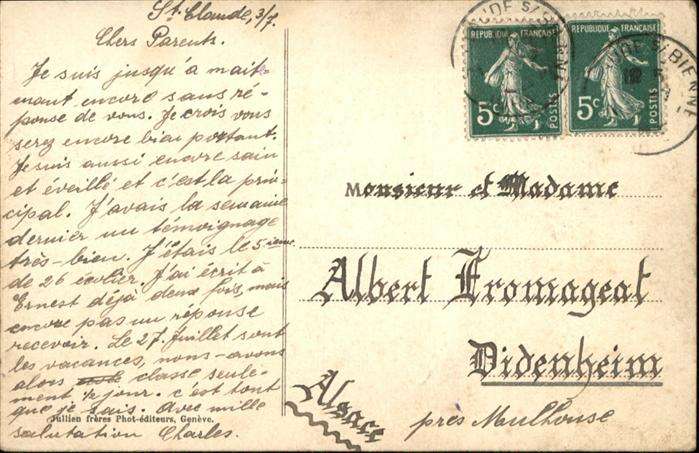 St. Claude, 3/7.
Chers Parents.
Je suis jusqu'à mait-
nant encore sans ré-
ponse de vous. Je crois vous
serez encore bien portant.
Je suis aussi encore sain
et éveillé et c'est la prin-
cipal. J'avais la semaine
dernier un témoignage
très-bien. J'étais le 5ieme
de 26 écolier. J'ai écrit à
Ernest déjà deux fois, mais
encore pas un réponse
recevoir. Le 27. Juillet sont
les vacances, nous-avons
alors classe seule-
ment ½ jour. c'est tout
que je sais. Avec mille
salutation Charles.
Jullien frères Phot-éditeurs, Genève.
REPUBLIQUE FRANÇAISE
5c
POSTES
REPUBLIQUE FRANÇAISE
5c
POSTES
Monsieur et Madame
Albert Fromageat
Didenheim
près Mulhouse
Alsace